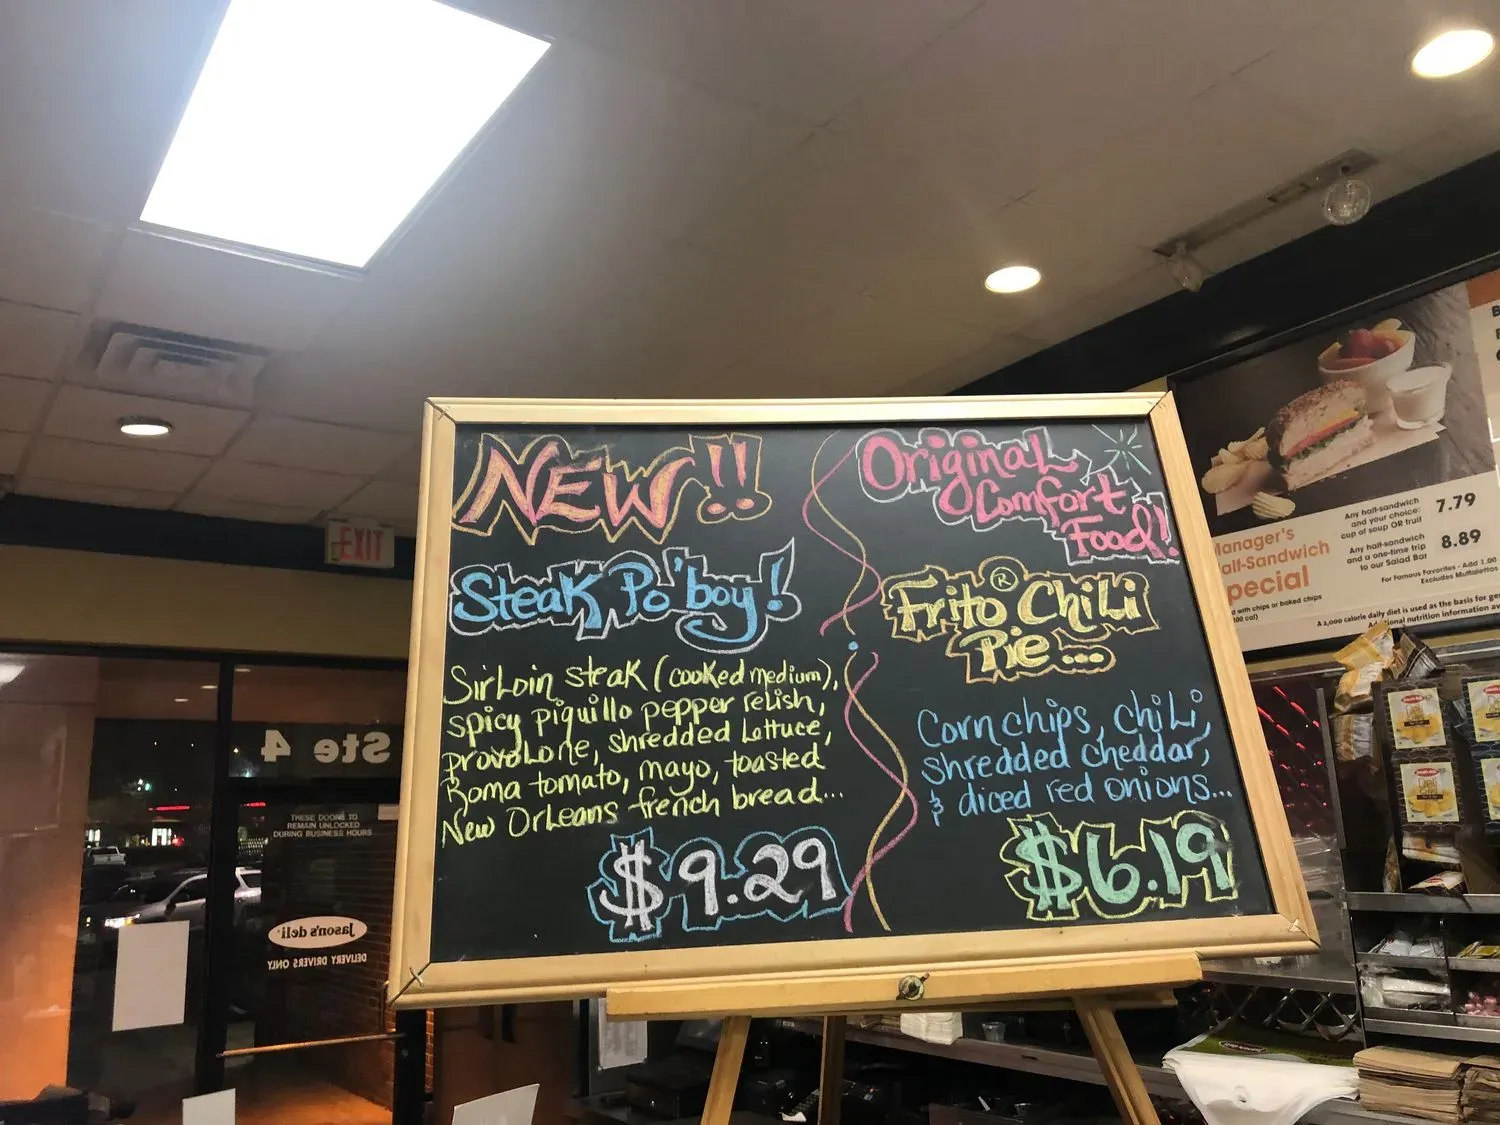 NEW!!
Steak Po'boy!
Sirloin steak (cooked medium),
spicy piquillo pepper relish,
provolone, shredded lettuce,
Roma tomato, mayo, toasted
New Orleans french bread...
$9.29
Original
Comfort
Food!
Frito® Chili
Pie...
Corn chips, chili,
shredded cheddar,
& diced red onions...
$6.19
EXIT
Ste 4
THESE DOORS TO
REMAIN UNLOCKED
DURING BUSINESS HOURS
Jason's deli
DELIVERY DRIVERS ONLY
Any half-sandwich
and your choice:
cup of soup OR fruit
7.79
Any half-sandwich
and a one-time trip
to our Salad Bar
8.89
For Famous Favorites - Add 1.00
Excludes Muffalettas
anager's
alf-Sandwich
pecial
d with chips or baked chips
A 2,000 calorie daily diet is used as the basis for ge
Additional nutrition information av